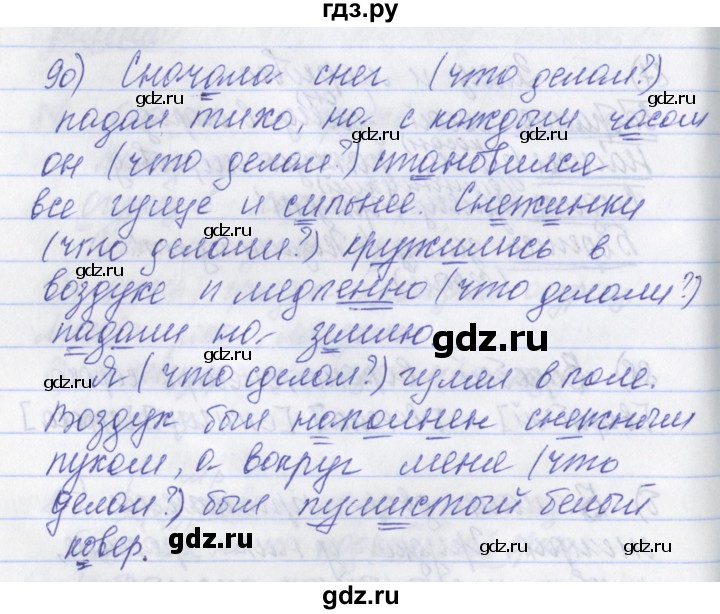 гдз.ру
90) Сначала снег (что делал?)
gdz.ru gdz.ru
падал тихо, но с каждым часом
gdz.ru
он (что делал?) становился
все гуще и сильнее. Снежинки
gdz.ru gdz.ru
(что делали?) кружились в
воздухе и медленно (что делали?)
падали на землю.
gdz.ru gdz.ru
gdz.ru Я (что сделал?) гулял в поле.
Воздух был наполнен снежным
gdz.ru
пухом, а вокруг меня (что
gdz.ru gdz.ru
делал?) был пушистый белый
ковер. gdz.ru
gdz.ru
gdz.ru